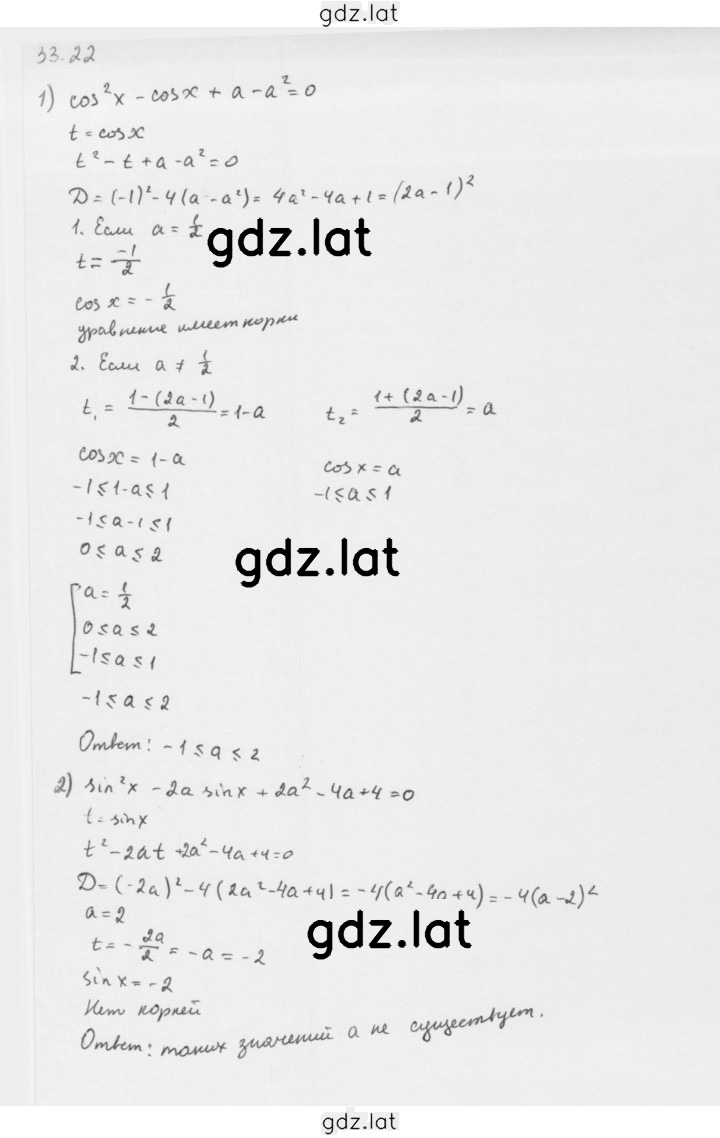 gdz.lat
33.22
1) cos²x - cosx + a - a² = 0
t = cosx
t² - t + a - a² = 0
D = (-1)² - 4(a - a²) = 4a² - 4a + 1 = (2a - 1)²
1. Если a = 1/2
gdz.lat
t = -1/2
cos x = - 1/2
уравнение имеет корни
2. Если a ≠ 1/2
t₁ = (1-(2a-1))/2 = 1-a t₂ = (1+(2a-1))/2 = a
cosx = 1-a cosx = a
-1 ≤ 1-a ≤ 1 -1 ≤ a ≤ 1
-1 ≤ a-1 ≤ 1
0 ≤ a ≤ 2
gdz.lat
[ a = 1/2
0 ≤ a ≤ 2
-1 ≤ a ≤ 1
-1 ≤ a ≤ 2
Ответ: -1 ≤ a ≤ 2
2) sin²x - 2a sinx + 2a² - 4a + 4 = 0
t = sinx
t² - 2at + 2a² - 4a + 4 = 0
D = (-2a)² - 4(2a² - 4a + 4) = -4(a² - 4a + 4) = -4(a - 2)²
a = 2
gdz.lat
t = - 2a/2 = -a = -2
sin x = -2
Нет корней
Ответ: таких значений a не существует.
gdz.lat